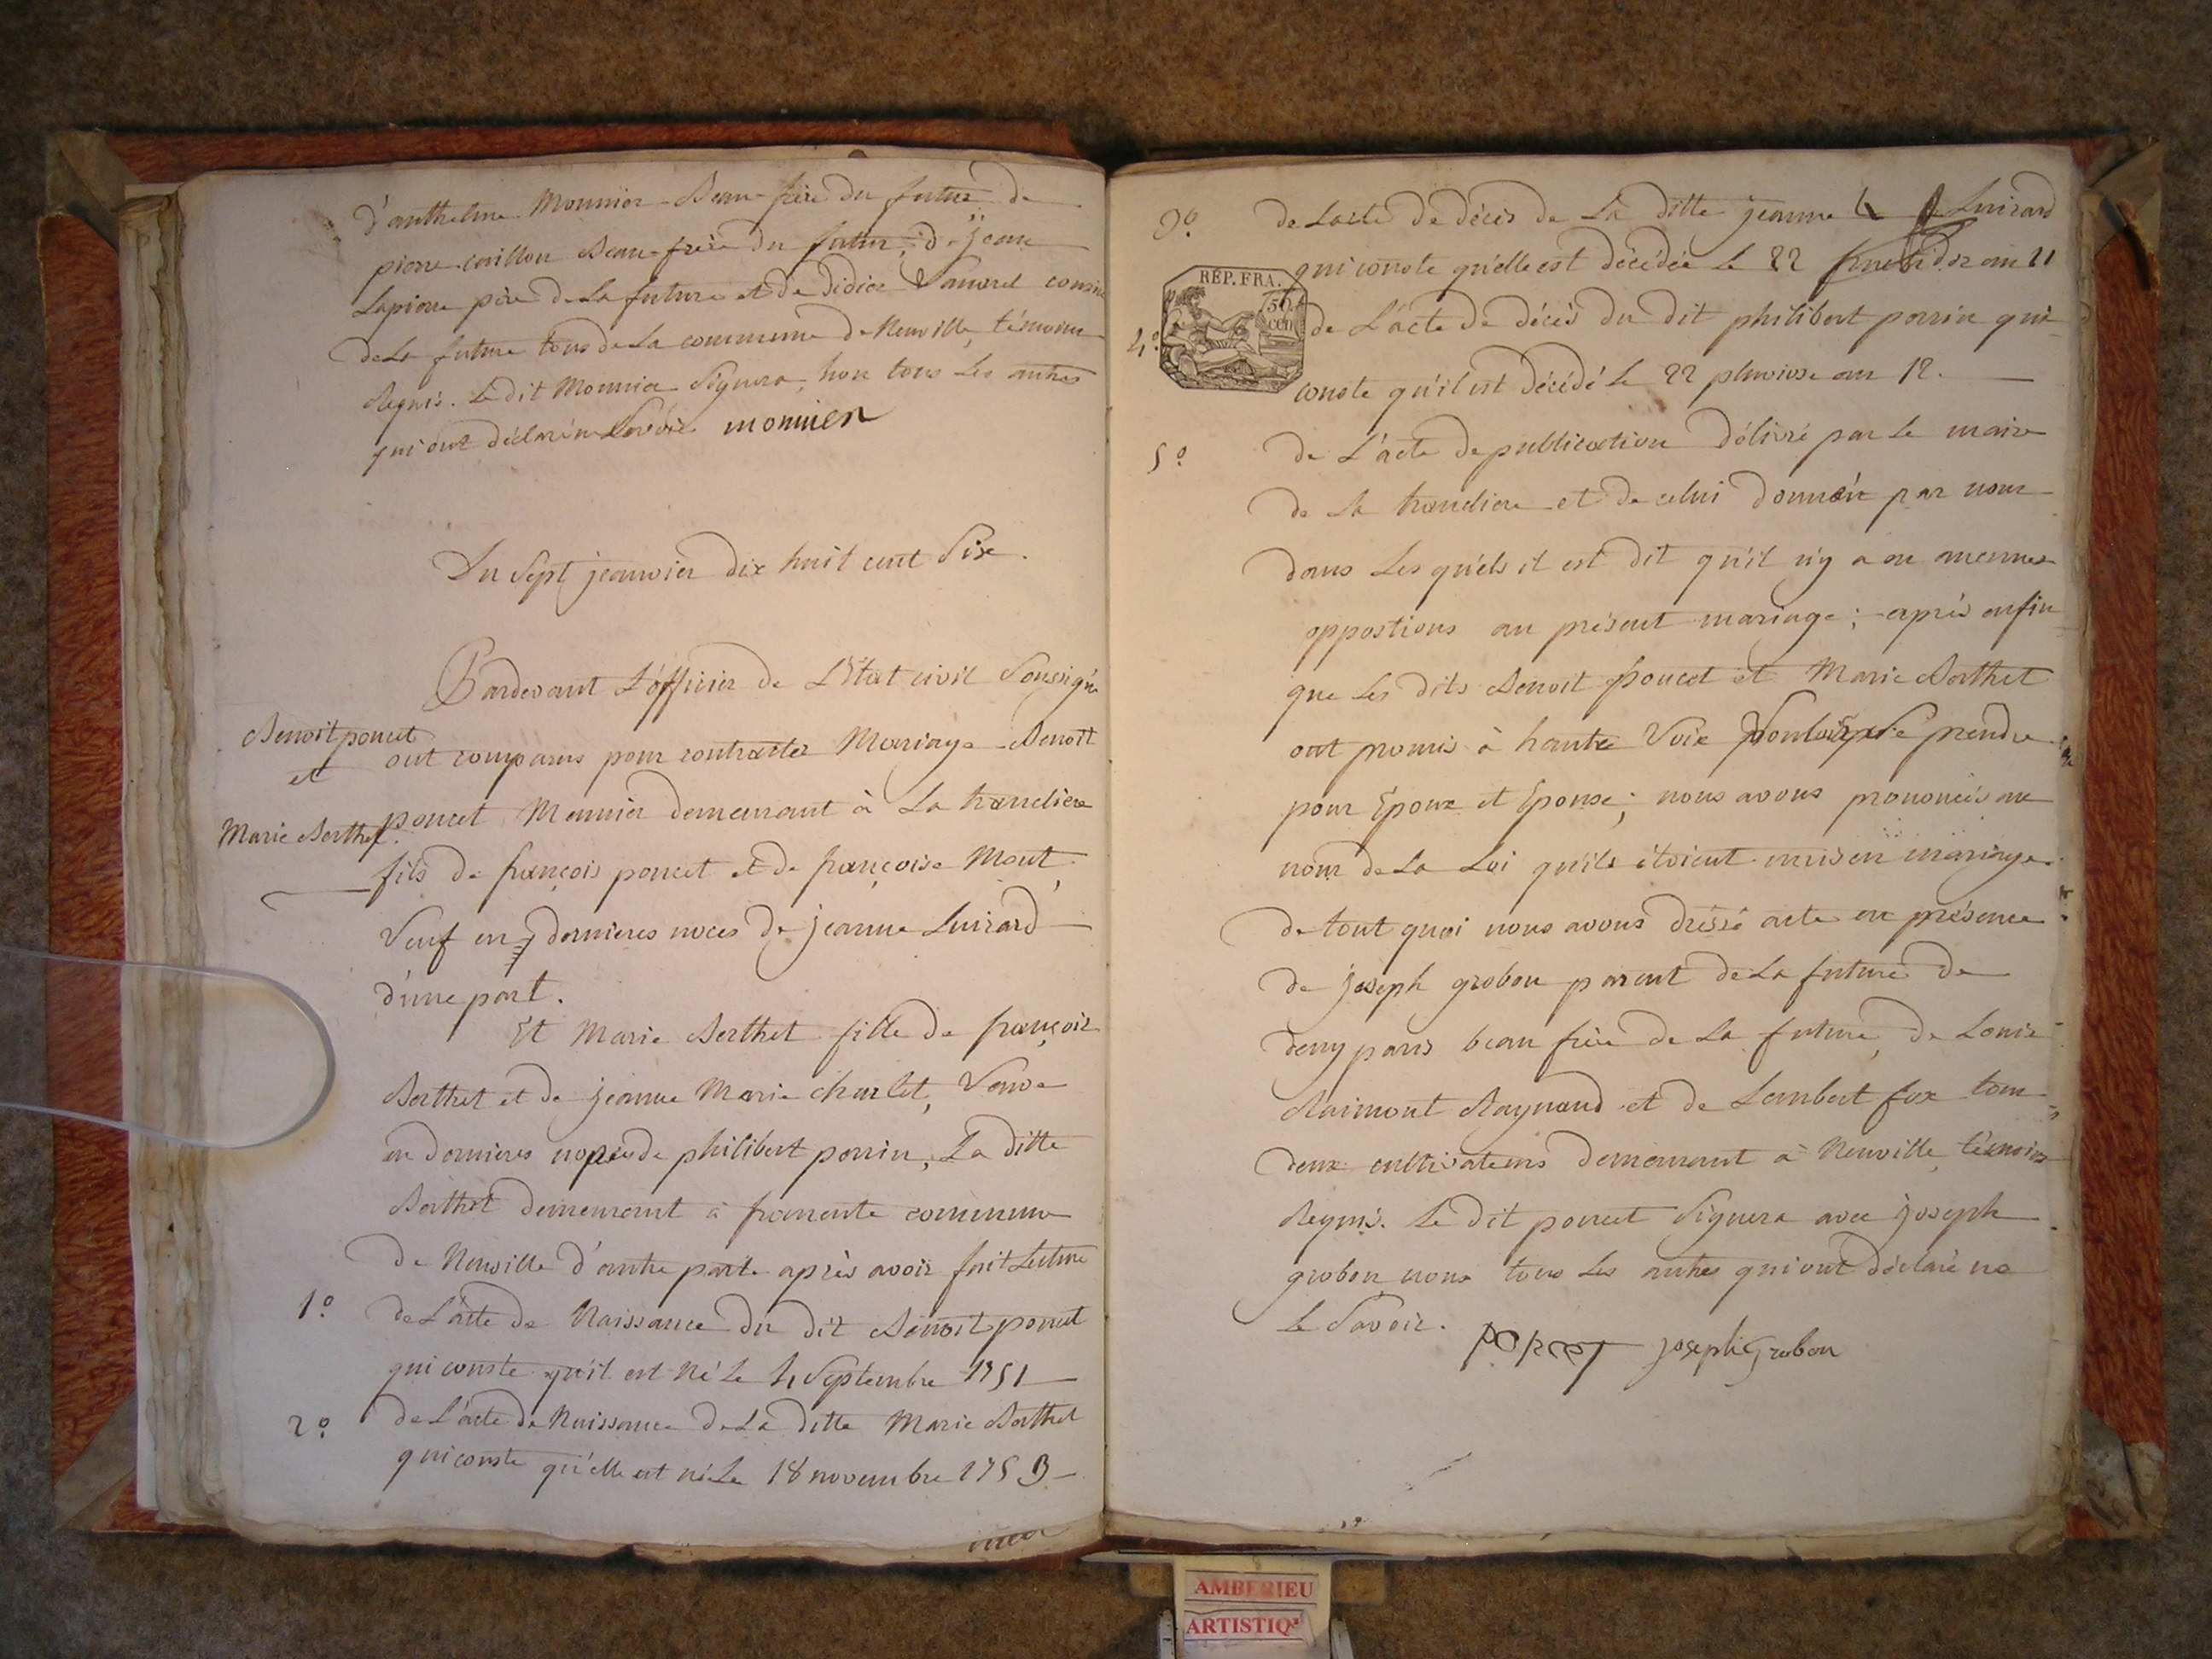 d'anthelme Monnier Beau-frère du futur de
pierre caillon Beau-frère du futur, de jean
Lapierre père de La future et de didier Savarel cousin
de La future tous de La commune de Neuville, témoins
Requis. Le dit Monnier Signera, non tous Les autres
qui ont déclaré ne Savoir monnier
Du Sept jeanvier dix huit cent Six.
Pardevant L'officier de L'Etat civil Soussigné
Benoit poncet
et
Marie Berthet.
ont comparus pour contracter Mariage Benoit
poncet Meunier demeurant à La tranclière
fils de françois poncet et de françoise Mout,
Veuf en dernieres noces de jeanne Luirard
d'une part.
Et Marie Berthet fille de françois
Berthet et de jeanne Marie charlet, Veuve
en dernieres noces de philibert perrin, La ditte
Berthet demeurant à fromente commune
de Neuville d'autre parte après avoir fait Lecture
1º de L'acte de Naissance du dit Benoit poncet
qui conste qu'il est Né Le 4 Septembre 1751
2º de L'acte de Naissance de La ditte Marie Berthet
qui conste qu'elle est née Le 18 novembre 1753
3º de L'acte de décès de La ditte jeanne Luirard
qui conste qu'elle est décédée Le 22 fructidor an 11
RÉP. FRA.
50 cen
4º de L'acte de décès du dit philibert perrin qui
conste qu'il est décédé Le 22 pluviose an 12.
5º de L'acte de publication délivré par Le maire
de La tranclière et de celui donnée par nous
dans Les quels il est dit qu'il n'y a eu aucunes
oppostions au présent mariage; après enfin
que Les dits Benoit poncet et Marie Berthet
ont promis à haute Voix Vouloir Se prendre
pour Epoux et Epouse; nous avons prononcés au
nom de La Loi qu'ils étoient unis en mariage
de tout quoi nous avons dressé acte en présence
de joseph grobon parent de La future de
deny paris beau frère de La future, de Louis
Raimont Raynaud et de Lambert fox tous
deux cultivateurs demeurant à Neuville, témoins
Requis. Le dit poncet Signera avec joseph
grobon nons tous Les autres qui ont déclaré ne
Le Savoir.
poncet joseph Grobon
AMBERIEU
ARTISTIQ